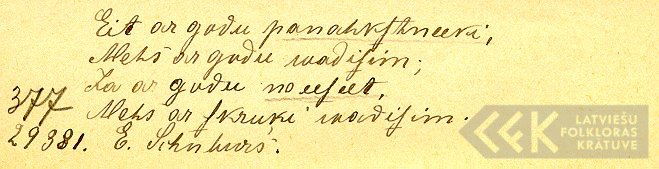 Eit ar godu panahkstneeki,
Mehs ar godu wadisim;
Ja ar godu no eeseet,
377 Mehs ar skruķi wadisim.
29381. E. Schuburs.
LATVIEŠU
FOLKLORAS
KRĀTUVE